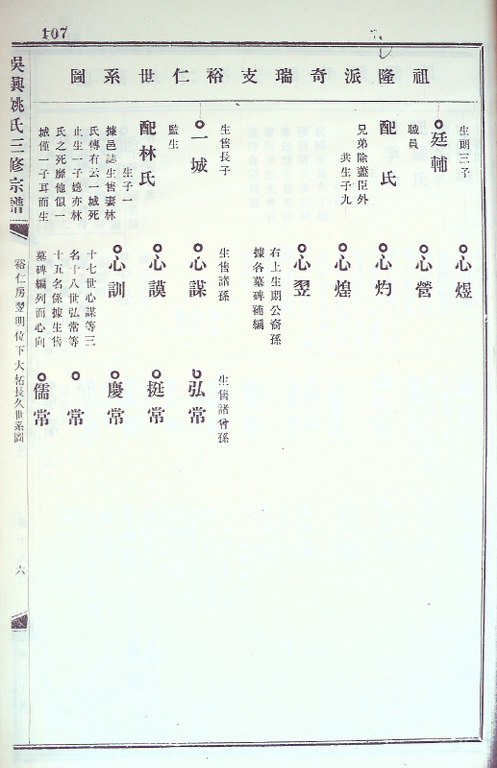 107
祖隆派奇瑞支裕仁世系圖
生朗三子
廷輔
職員
配 氏
兄弟除蓋臣外
共生子九
心煜
心營
心灼
心煌
心翌
右上生朗公裔孫
據各墓碑補編
生售長子
一城
監生
配林氏
生子一
據邑誌生售妻林
氏傳有云一城死
止生一子媳亦林
氏之死靡他似一
城僅一子耳而生
生售諸孫
心謀
心謨
心訓
十七世心謀等三
名十八世弘常等
十五名係據生售
墓碑編列而心向
生售諸曾孫
弘常
挺常
慶常
常
儒常
吳興姚氏三修宗譜
裕仁房翌明位下大拓長久世系圖
六